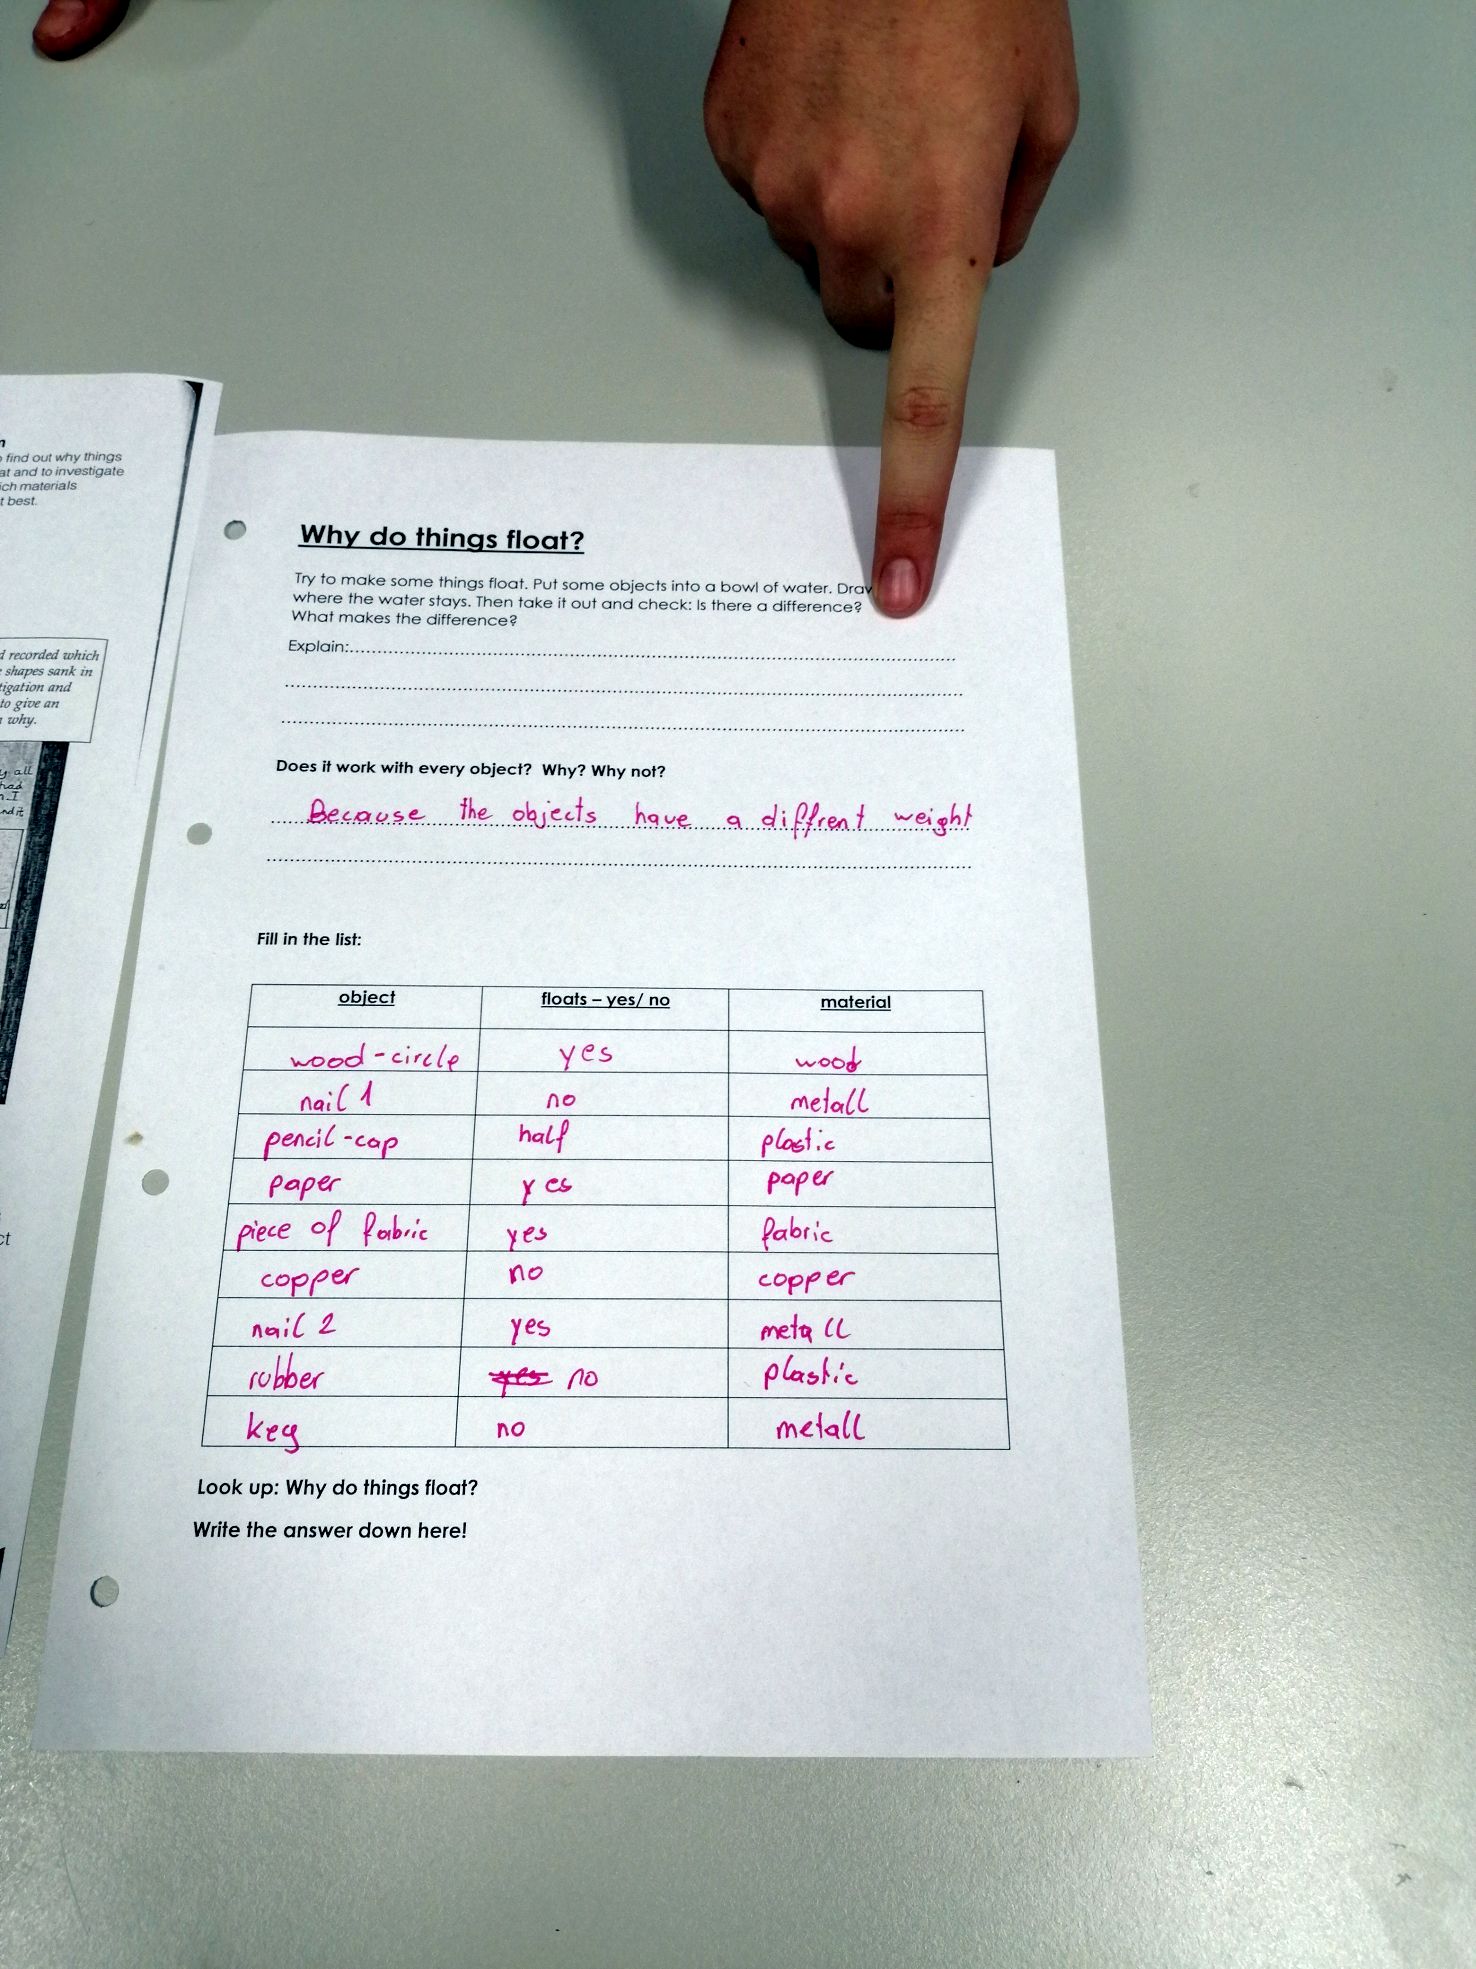 find out why things
at and to investigate
ich materials
t best.
d recorded which
shapes sank in
tigation and
to give an
why.
all
had
I
Why do things float?
Try to make some things float. Put some objects into a bowl of water. Draw
where the water stays. Then take it out and check: Is there a difference?
What makes the difference?
Explain:
Does it work with every object? Why? Why not?
Because the objects have a diffrent weight
Fill in the list:
object floats – yes/ no material
wood-circle yes wood
nail 1 no metall
pencil-cap half plastic
paper yes paper
piece of fabric yes fabric
copper no copper
nail 2 yes metall
rubber yes no plastic
key no metall
Look up: Why do things float?
Write the answer down here!